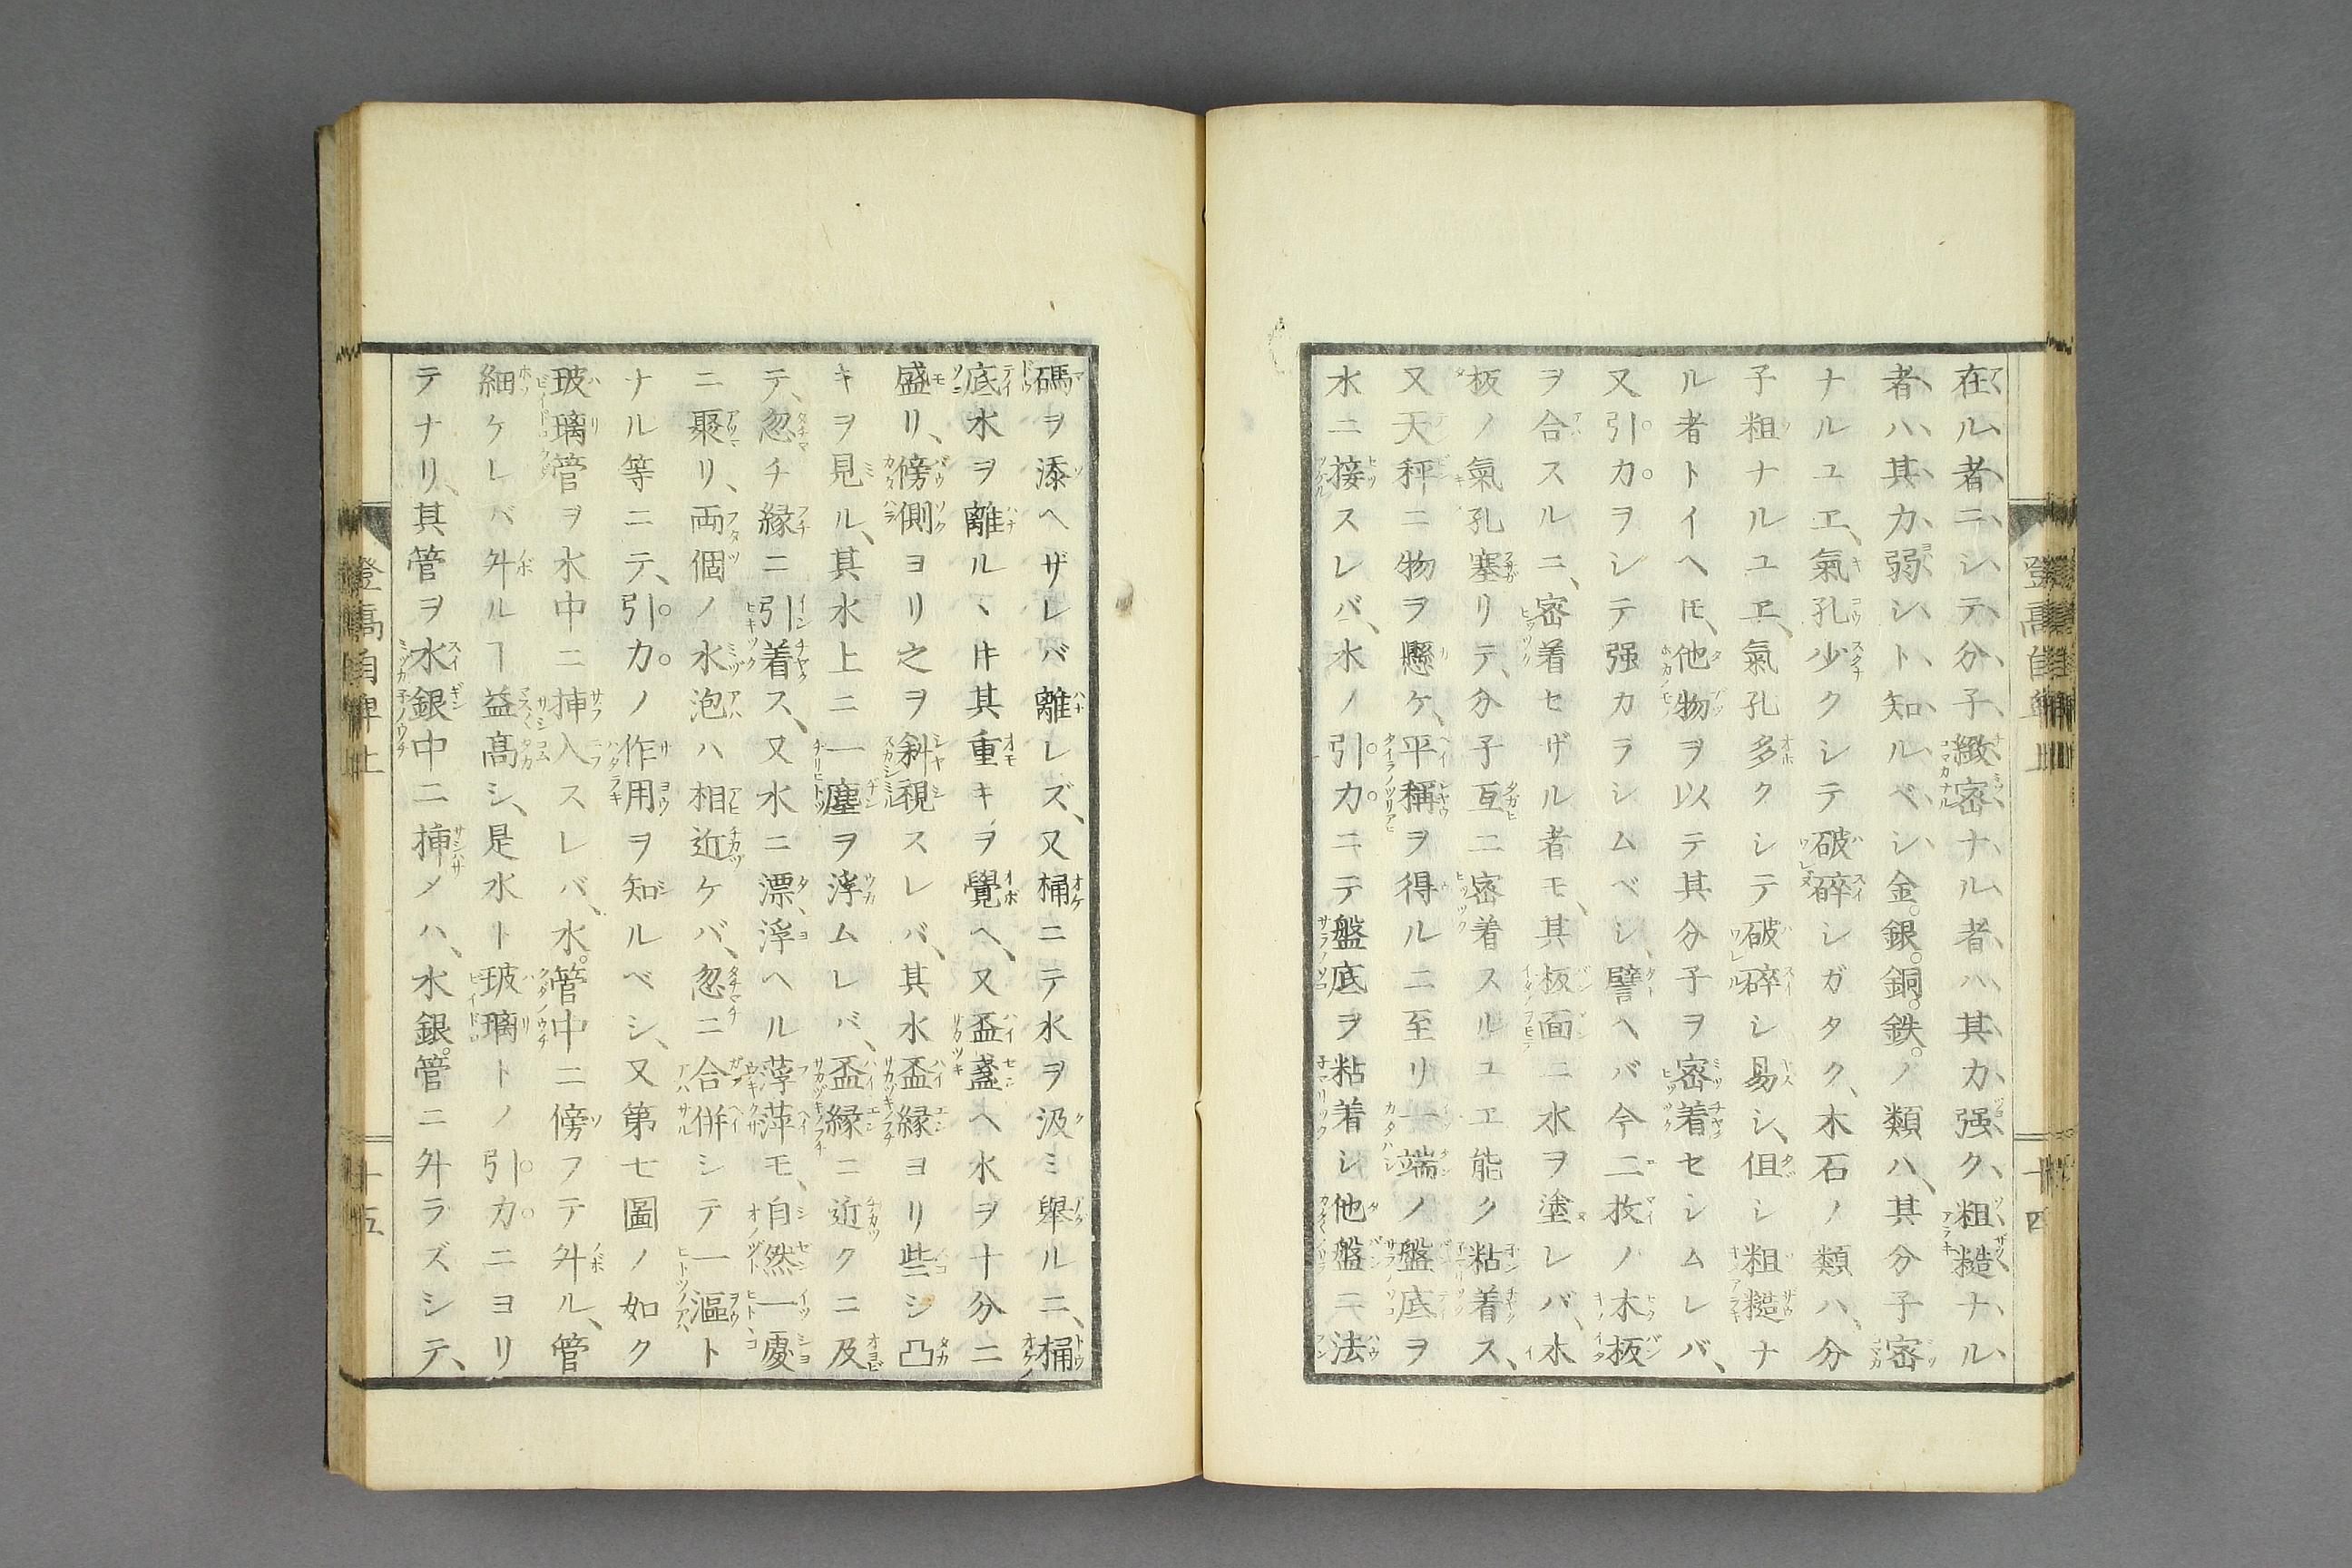 在ル者ニシテ分子緻密ナル者ハ其力强ク粗糙ナル
者ハ其力弱シト知ルベシ金銀銅鉄ノ類ハ、其分子密
ナルユヱ、氣孔少クシテ破碎シガタク、木石ノ類ハ、分
子粗ナルユヱ、氣孔多クシテ破碎シ易シ、但シ粗糙ナ
ル者トイヘ𪜈、他物ヲ以テ其分子ヲ密着セシムレバ、
又引力ヲシテ强カラシムベシ、譬ヘバ今二枚ノ木板
ヲ合スルニ、密着セザル者モ、其板面ニ水ヲ塗レバ、木
板ノ氣孔塞リテ、分子互ニ密着スルユエ能ク粘着ス、
又天秤ニ物ヲ懸ケ、平稱ヲ得ルニ至リ一端ノ盤底ヲ
水ニ接スレバ、水ノ引力ニテ盤底ヲ粘着シ他盤ニ法
登高自卑上
十四
碼ヲ添ヘザレバ離レズ、又桶ニテ水ヲ汲ミ舉ルニ、桶
底水ヲ離ルヽ𪜈其重キヲ覺ヘ、又盃盞ヘ水ヲ十分ニ
盛リ、傍側ヨリ之ヲ斜視スレバ、其水盃縁ヨリ些シ凸
キヲ見ル、其水上ニ一塵ヲ浮ムレバ、盃縁ニ近クニ及
テ、忽チ縁ニ引着ス、又水ニ漂浮ヘル萍モ、自然一處
ニ聚リ、両個ノ水泡ハ相近ケバ、忽ニ合併シテ一漚ト
ナル等ニテ、引力ノ作用ヲ知ルベシ、又第七圖ノ如ク
玻璃管ヲ水中ニ挿入スレバ、水管中ニ傍フテ舛ル、管
細ケレバ舛ルヿ益高シ、是水ト玻璃トノ引力ニヨリ
テナリ、其管ヲ水銀中ニ挿メハ、水銀管ニ舛ラズシテ、
登高自卑上
十五